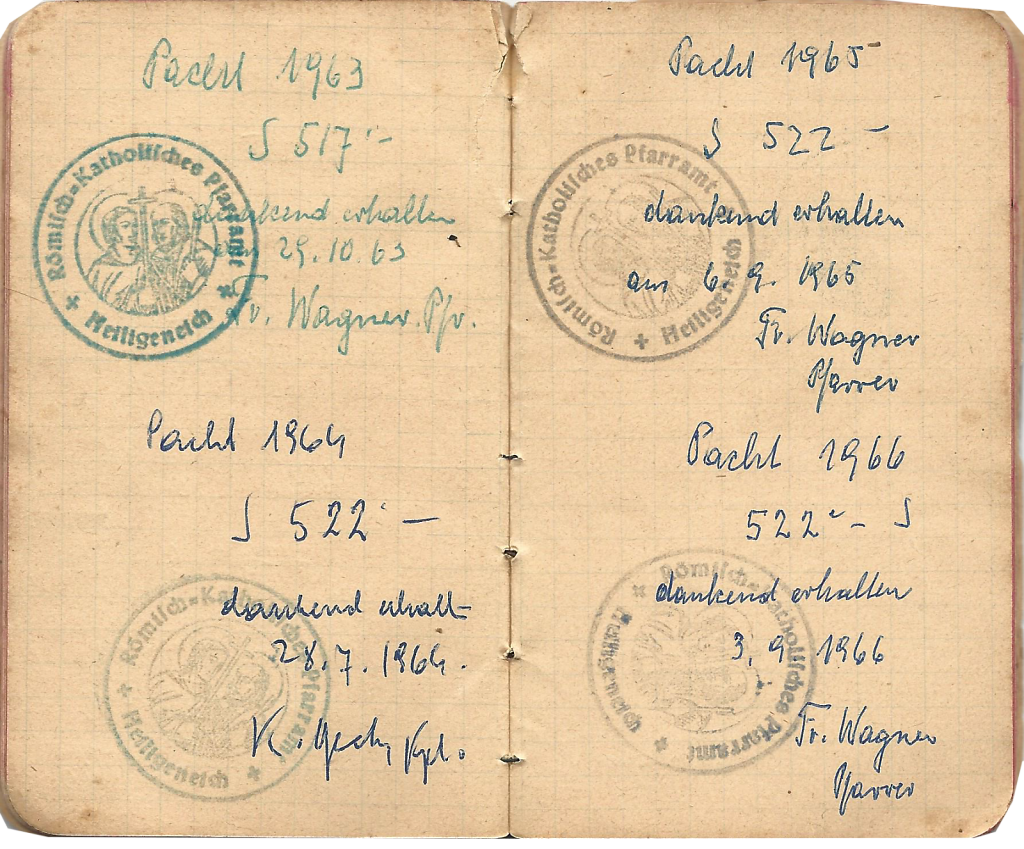 Pacht 1963
S 517'-
Römisch-Katholisches Pfarramt + Heiligeneich +
dankend erhalten
29.10.63
Fr. Wagner. Pfr.
Pacht 1964
S 522'-
Römisch-Katholisches Pfarramt + Heiligeneich +
dankend erhalt
28.7.1964.
K. Kpl.
Pacht 1965
S 522 -
Römisch-Katholisches Pfarramt + Heiligeneich
dankend erhalten
am 6.9.1965
Fr. Wagner
Pfarrer
Pacht 1966
522'- S
Römisch-Katholisches Pfarramt + Heiligeneich +
dankend erhalten
3.9.1966
Fr. Wagner
Pfarrer